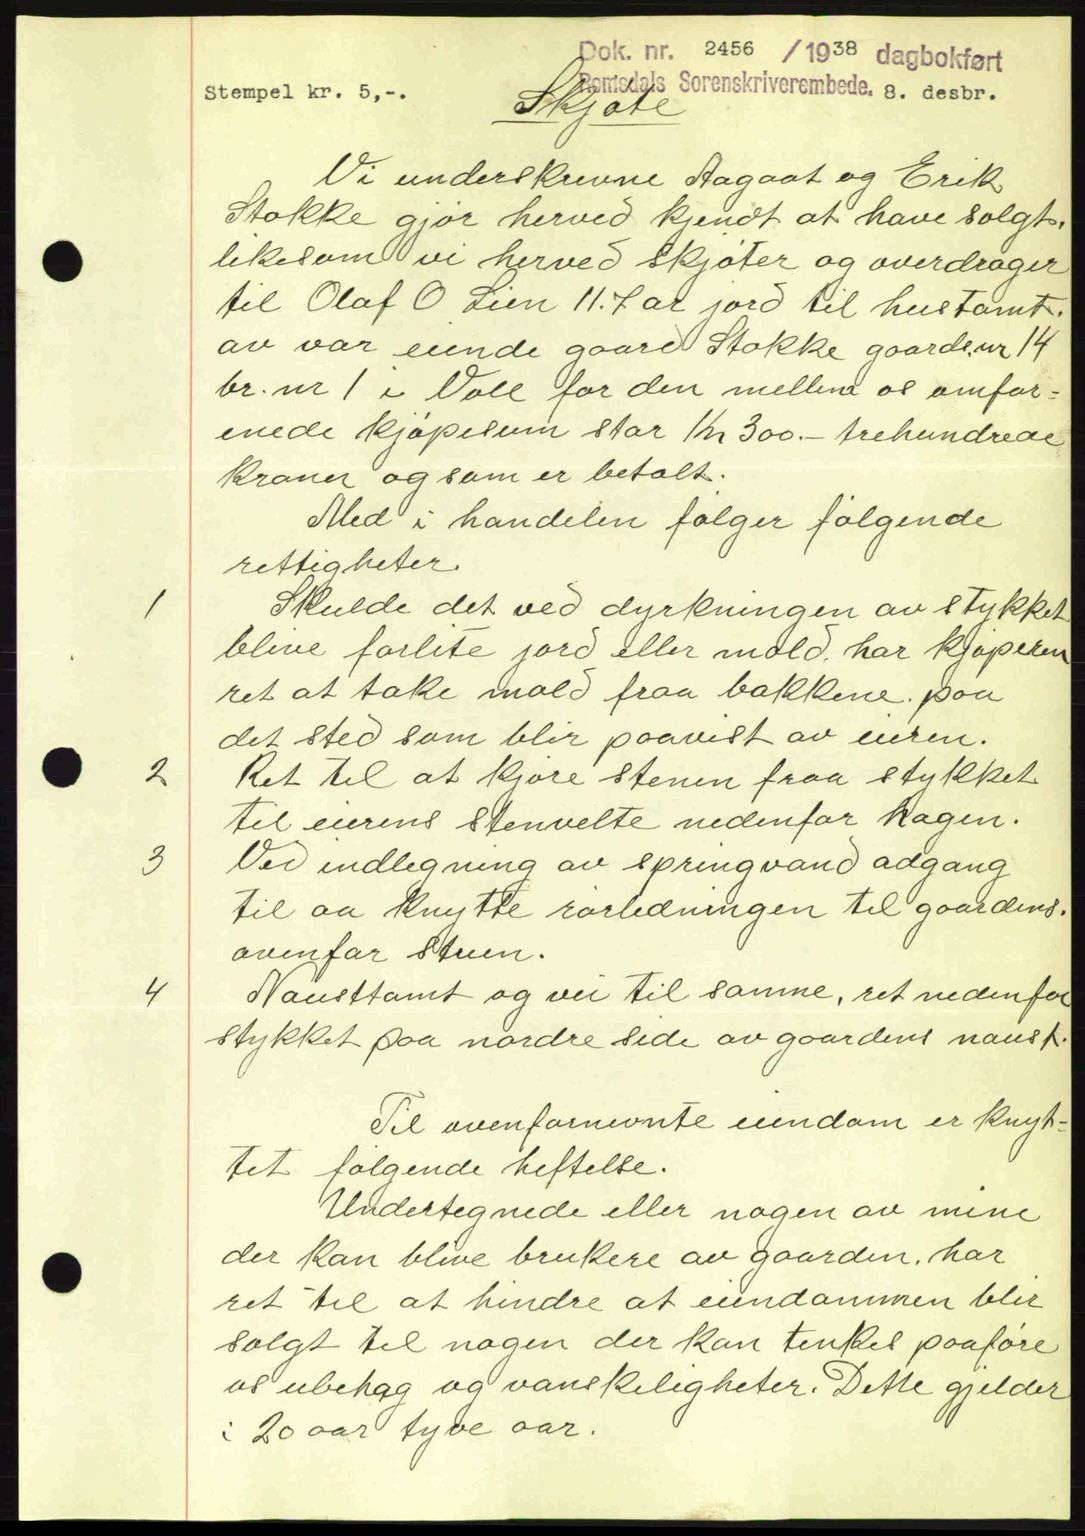 Dok. nr. 2456 / 1938 dagbokført
Romsdals Sorenskriverembede. 8. desbr.
Stempel kr. 5,-.
Skjøte
Vi underskrevne Aagaat og Erik
Stokke gjør herved kjendt at have solgt,
likesom vi herved skjøter og overdrager
til Olaf O Lien 11.7 ar jord til hustomt.
av vor eiende gaard Stokke gaards.nr 14
br. nr 1 i Voll for den mellem os omfor=
enede kjøpesum stor Kr 300.- trehundrede
kroner og som er betalt.
Med i handelen følger følgende
rettigheter.
1 Skulde det ved dyrkningen av stykket
blive forlite jord eller mold. har kjøperen
ret at take mold fraa bakkene. paa
det sted som blir paavist av eieren.
2 Ret til at kjøre stenen fraa stykket
til eierens stenvelte nedenfor hagen.
3 Ved indlegning av springvand adgang
til aa knytte rørledningen til gaardens.
ovenfor stuen.
4 Nausttomt og vei til samme, ret nedenfor
stykket paa nordre side av gaardens naust.
Til ovenfornevnte eiendom er knyt=
tet følgende heftelse.
Undertegnede eller nogen av mine
der kan blive brukere av gaarden. har
ret til at hindre at eiendommen blir
solgt til nogen der kan tenkes paaføre
os ubehag og vanskeligheter. Dette gjelder
i 20 aar tyve aar.